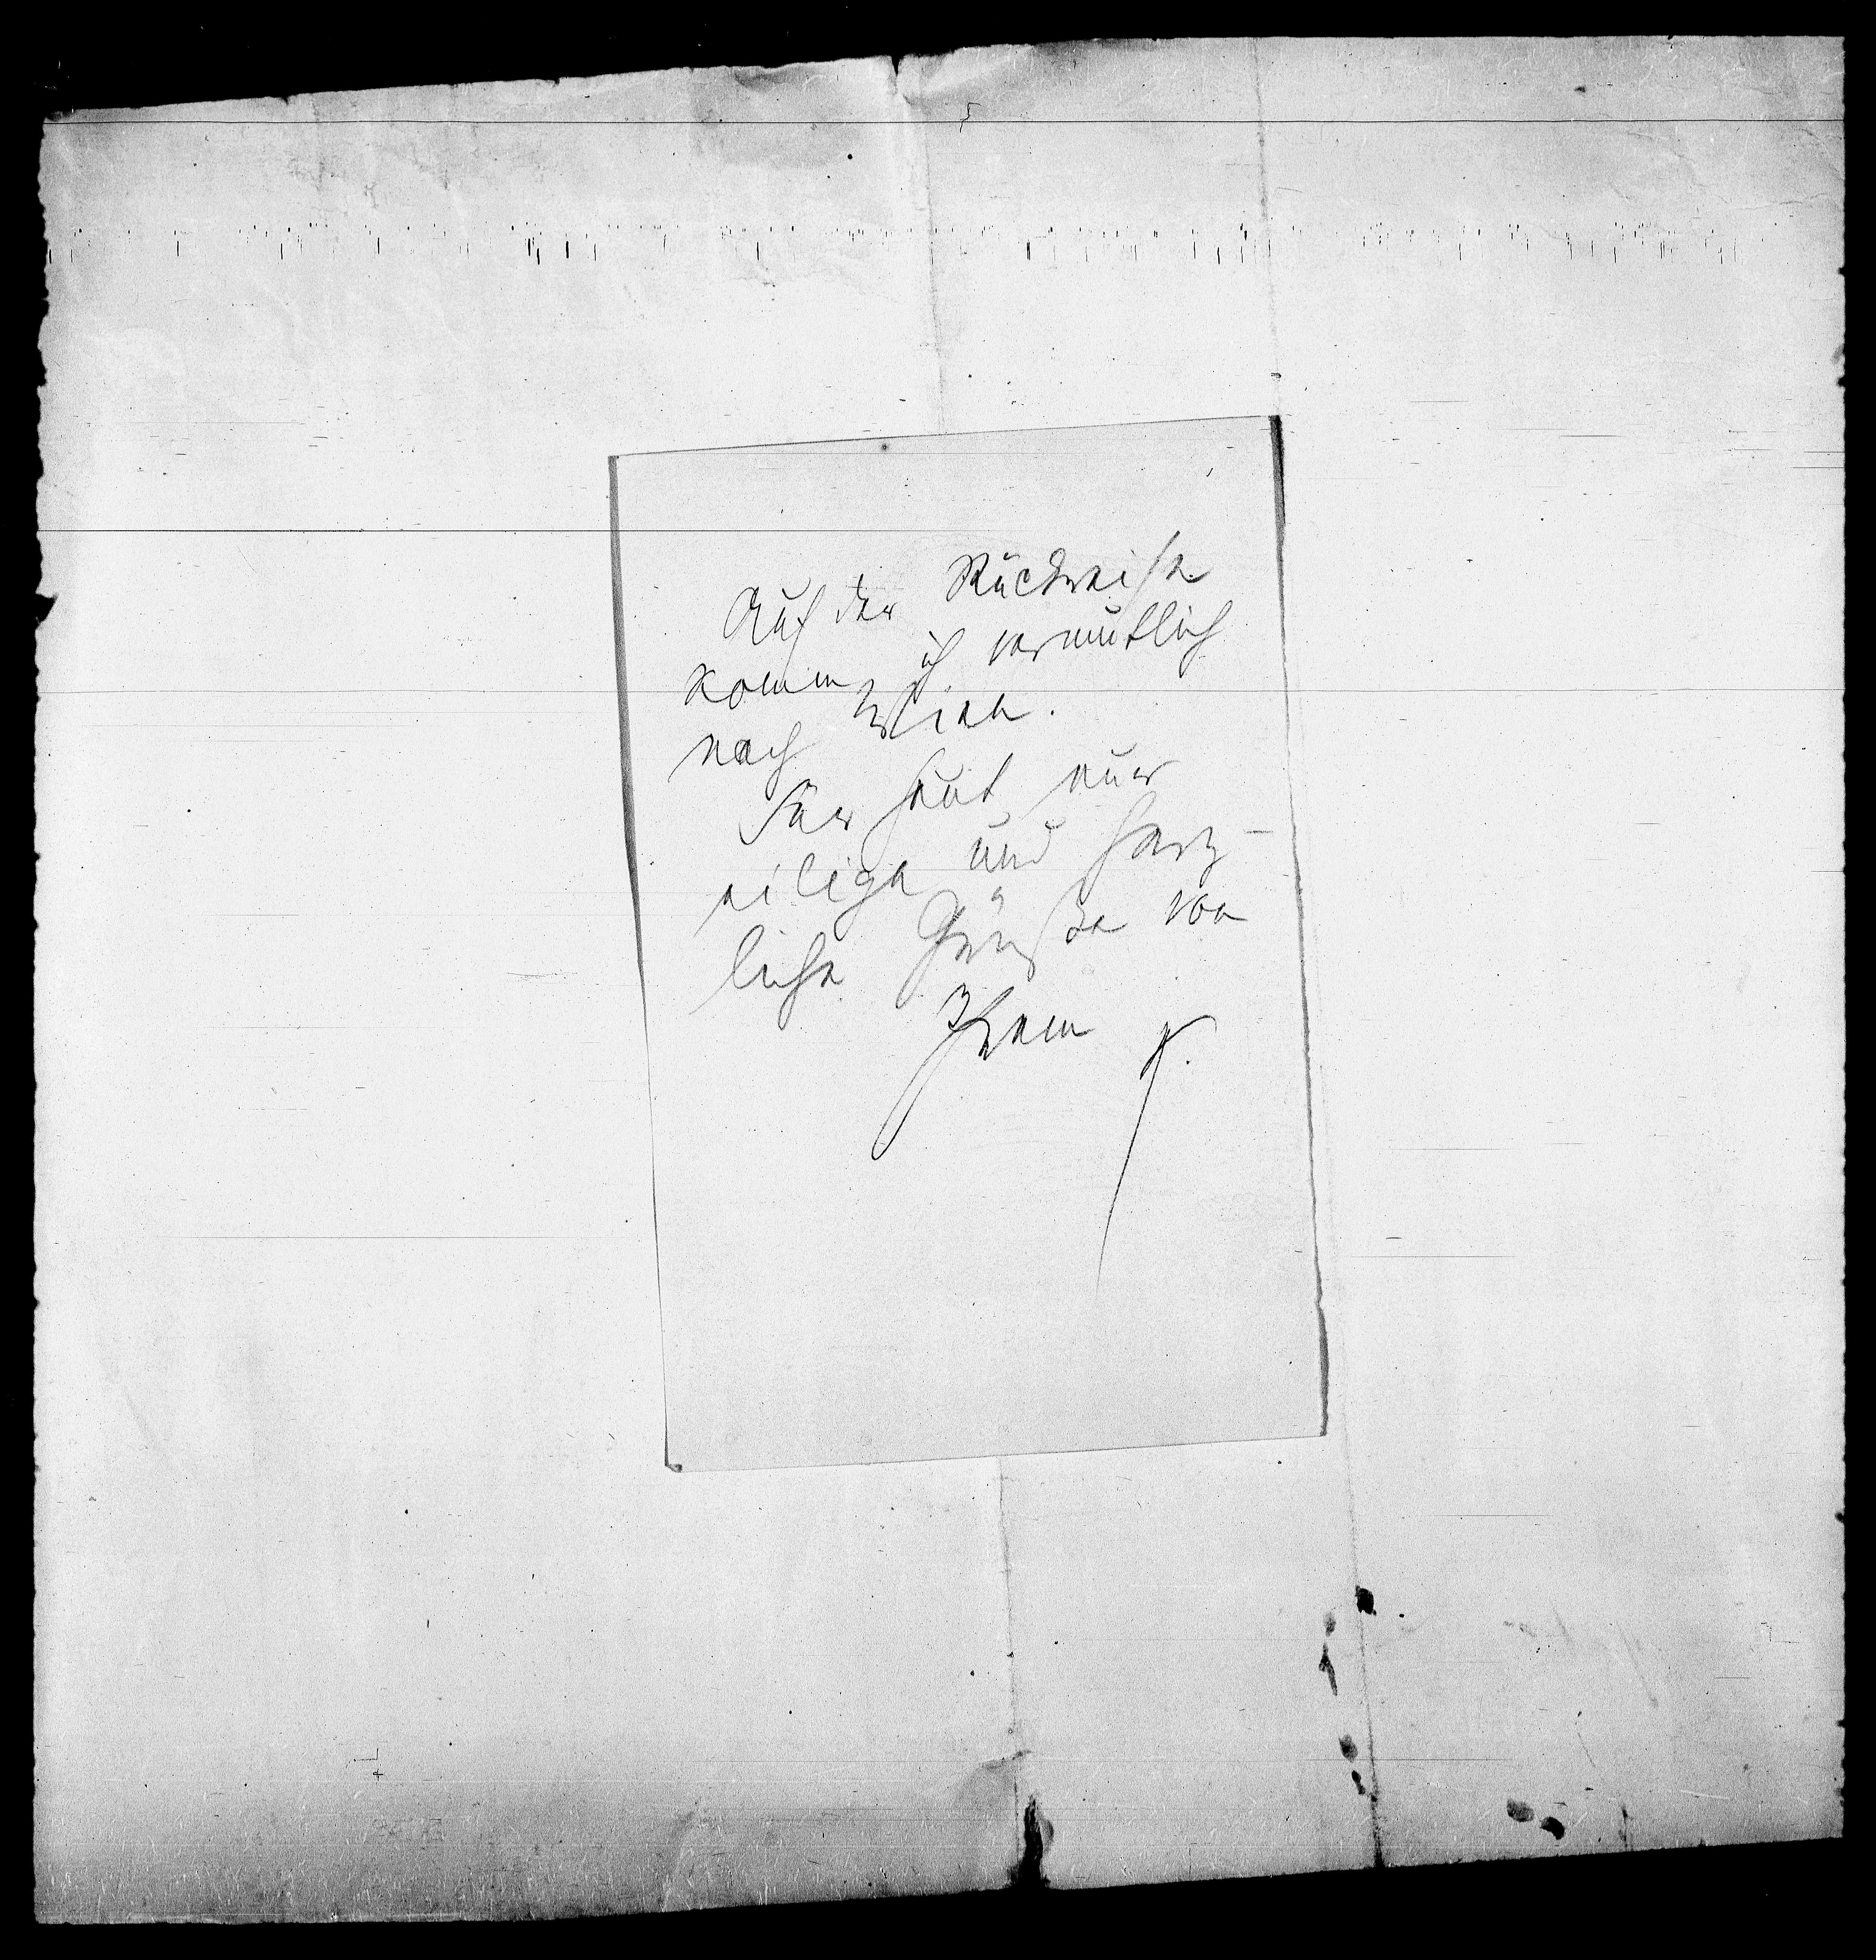 Auf der Rückreise
komm ich vermutlich
nach Wien.
Für heut nur
eilige und herz-
liche Grüße von
Ihrem